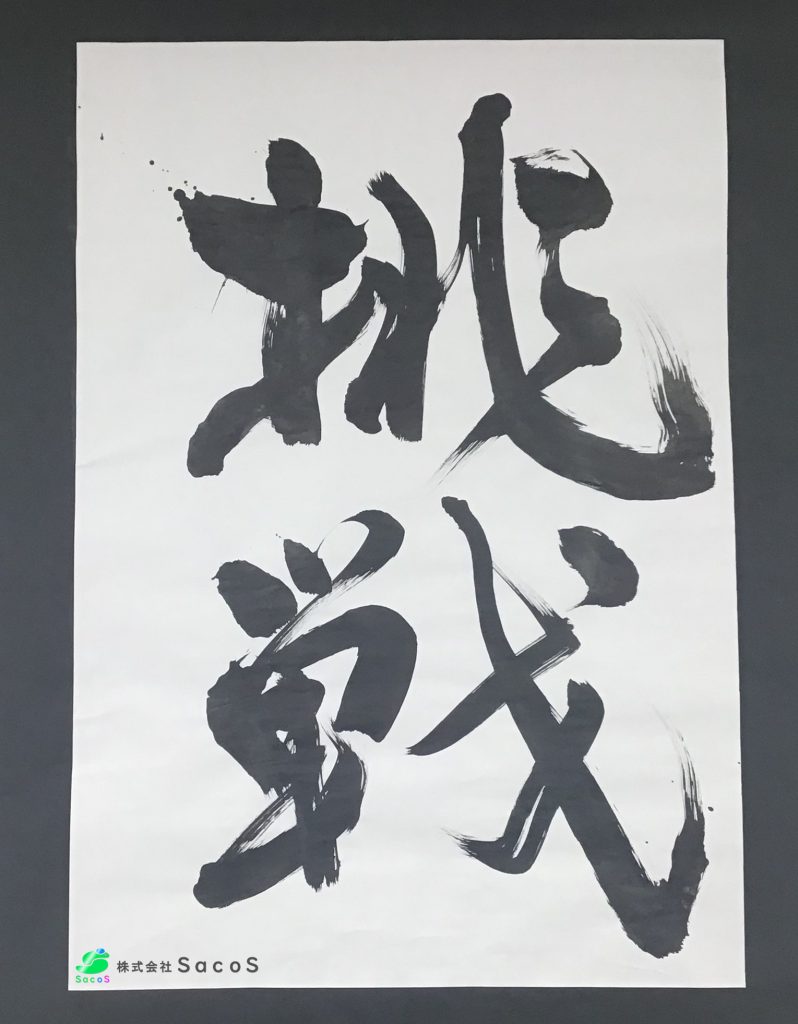 挑
戦
SacoS
株式会社SacoS